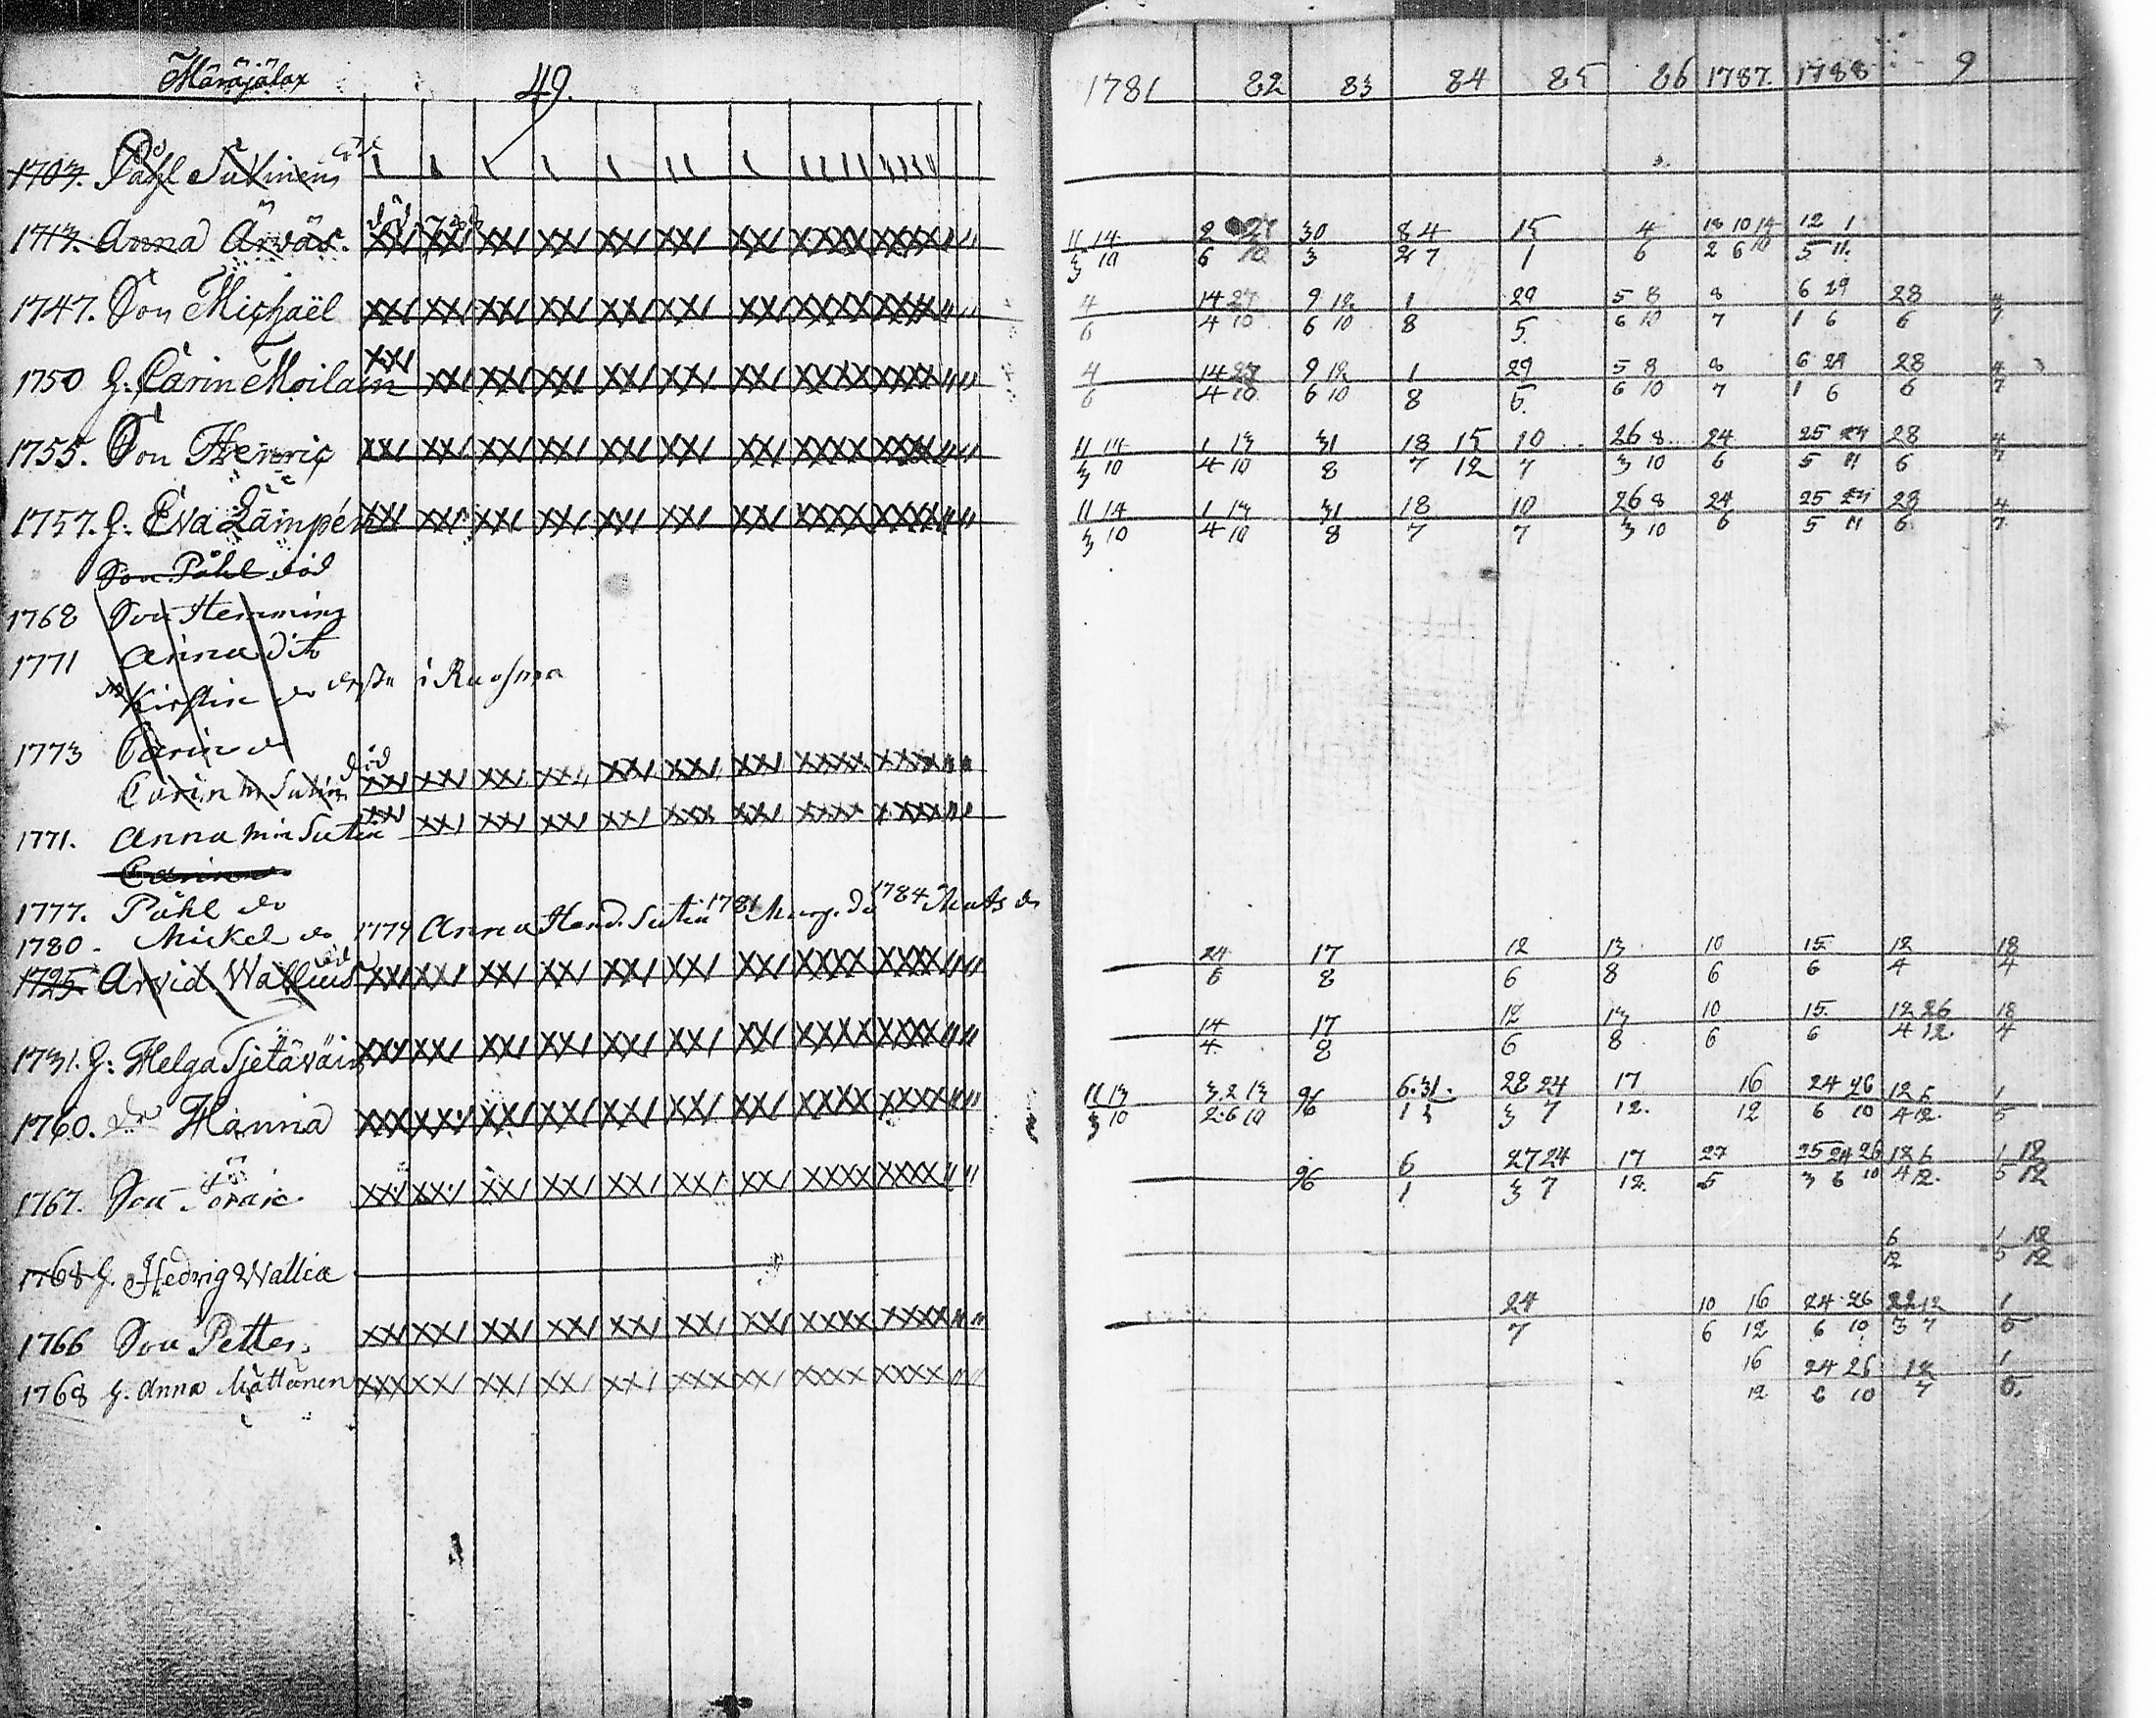 Märäjälax 49.
1781 82 83 84 85 86 1787. 1788 9
1703. Påhl Sutinen död
1713. Anna Arväs. död 788 11/3 14/10 2/6 27/10 30/3 8/2 4/7 15/1 4/6 18/2 10/6 14/10 12/5 1/11
1747. Son Michaël 4/6 14/4 27/10 9/6 12/10 1/8 29/5 5/6 8/10 8/7 6/1 29/6 28/6 4/7
1750 H. Carin Moilain 4/6 14/4 27/10 9/6 12/10 1/8 29/5 5/6 8/10 8/7 6/1 29/6 28/6 4/7
1755. Son Henric 11/3 14/10 1/4 13/10 31/8 18/7 15/12 10/7 26/3 8/10 24/6 25/5 23/11 28/6 4/7
1757. H. Eva Lämpén 11/3 14/10 1/4 13/10 31/8 18/7 10/7 26/3 8/10 24/6 25/5 23/11 28/6 4/7
Son Påhl död
1768 Son Hemming
1771 Anna dito
Kirstin do i Ruosma
1773 Carin do
Carin M Sutin död
1771. Anna Min Sutin
Carin
1777. Påhl do
1780. Mickel do 1779 Anna Hend. Sutin 1781 Marg. do 1784 Mats do
1725 Arvid Wallius död 24/5 17/8 12/6 13/8 10/6 15/6 12/4 18/4
1731. H: Helga Tjetäväin 14/4 17/8 12/6 13/8 10/6 15/6 12/4 26/12 18/4
1760. dr Hanna 11/3 13/10 3/2 2/6 13/10 9/6 6/1 31/3 28/3 24/7 17/12 16/12 24/6 26/10 12/4 6/12 1/5
1767. Son Jöran 9/6 6/1 27/3 24/7 17/12 27/5 25/3 24/6 26/10 12/4 6/12 1/5 12/12
1768 H. Hedvig Wallia 6/12 1/5 12/12
1766 Son Petter 24/7 10/6 16/12 24/6 26/10 22/3 12/7 1/5
1768 H. Anna Mattanen 16/12 24/6 26/10 12/7 1/5